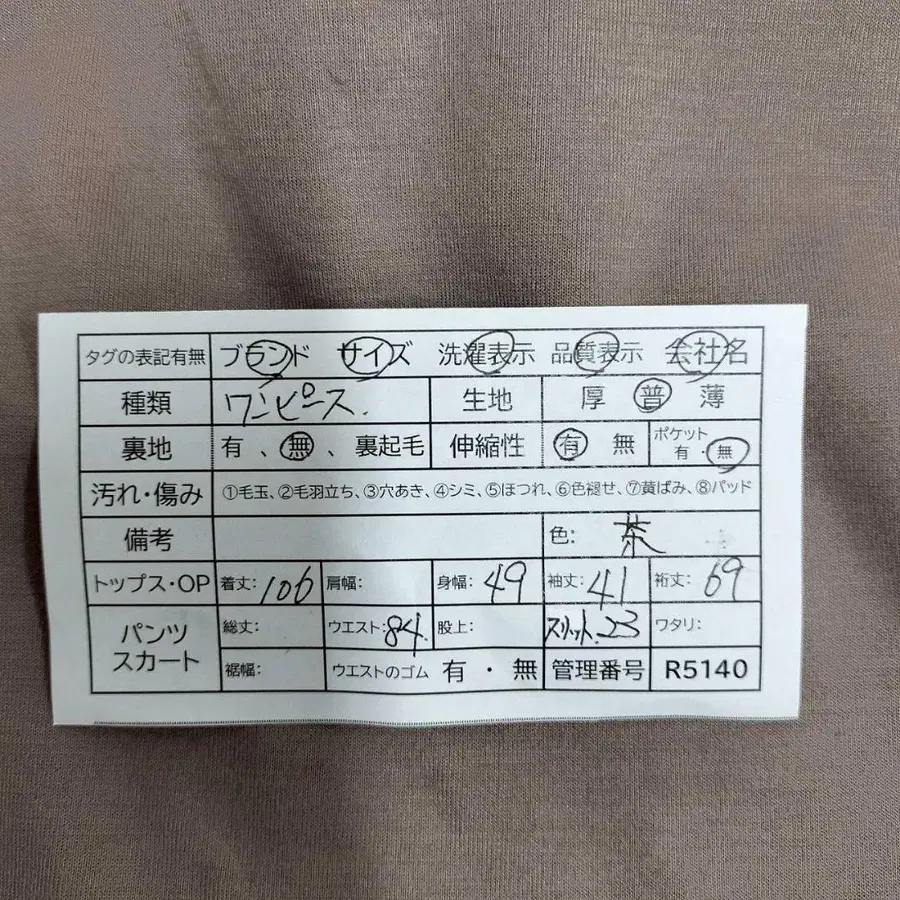 タグの表記有無 ブランド サイズ 洗濯表示 品質表示 会社名
種類 ワンピース. 生地 厚 普 薄
裏地 有、無、裏起毛 伸縮性 有 無 ポケット 有・無
汚れ・傷み ①毛玉、②毛羽立ち、③穴あき、④シミ、⑤ほつれ、⑥色褪せ、⑦黄ばみ、⑧パッド
備考 色: 茶
トップス・OP 着丈: 106 肩幅: 身幅: 49 袖丈: 41 裄丈: 69
パンツ スカート 総丈: ウエスト: 84. 股上: スリット. 23 ワタリ:
裾幅: ウエストのゴム 有・無 管理番号 R5140